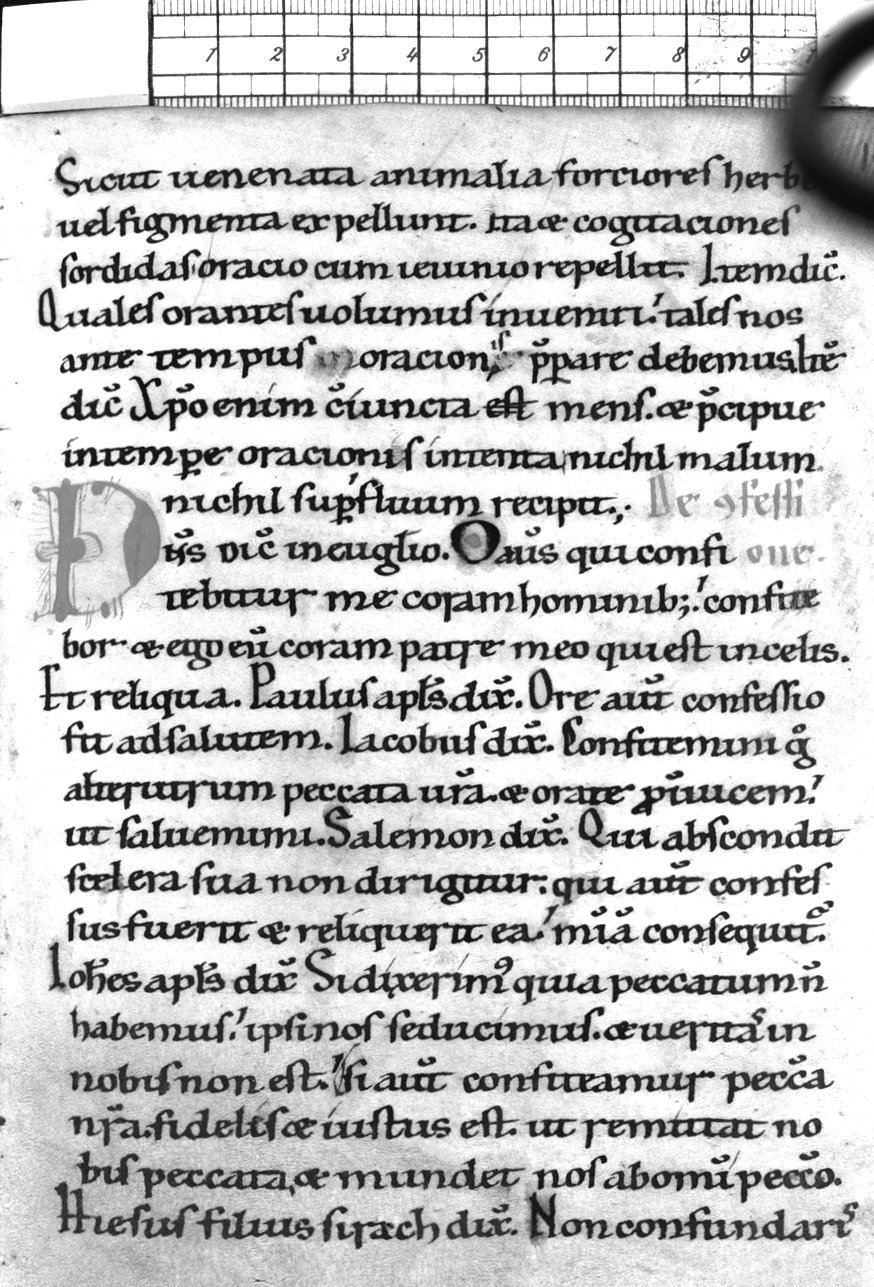 1 2 3 4 5 6 7 8 9
Sicut uenenata animalia forciores herb
uel figmenta expellunt. ita & cogitaciones
sordidas oracio cum ieiunio repellit. Item dic̄.
Quales orantes uolumus inueniri. tales nos
ante tempus oracionis p̄parare debemus. Itē
dic̄ Xp̄o enim c̄iuncta est mens. & p̄cipue
in tempore oracionis intenta, nichil malum
nichil sup̄fluum recipit. De ꝯfessi
Dn̄s dic̄ in euuglio. Om̄s qui confi one.
tebitur me coram hominib;. confite
bor & ego eū coram patre meo qui est in celis.
Et reliqua. Paulus apl̄s dix̄. Ore aut̄ confessio
fit ad salutem. Iacobus dix̄. Confitemini g̊
alterutrum peccata ur̄a. & orate ꝓ inuicem.
ut saluemimi. Salemon dix̄. Qui abscondit
scelera sua non dirigitur: qui aut̄ confes
sus fuerit & reliquerit ea. mīā consequit̄.
Ioh̄es apl̄s dix̄ Si dixerimꝰ quia peccatum n̄
habemus. ipsi nos seducimus. & ueritas in
nobis non est. si aut̄ confiteamur pecc̄a
nr̄a. fidelis & iustus est. ut remittat no
bis peccata, & mundet nos ab omī pecc̄o.
Hiesus filius sirach dix̄. Non confundaris